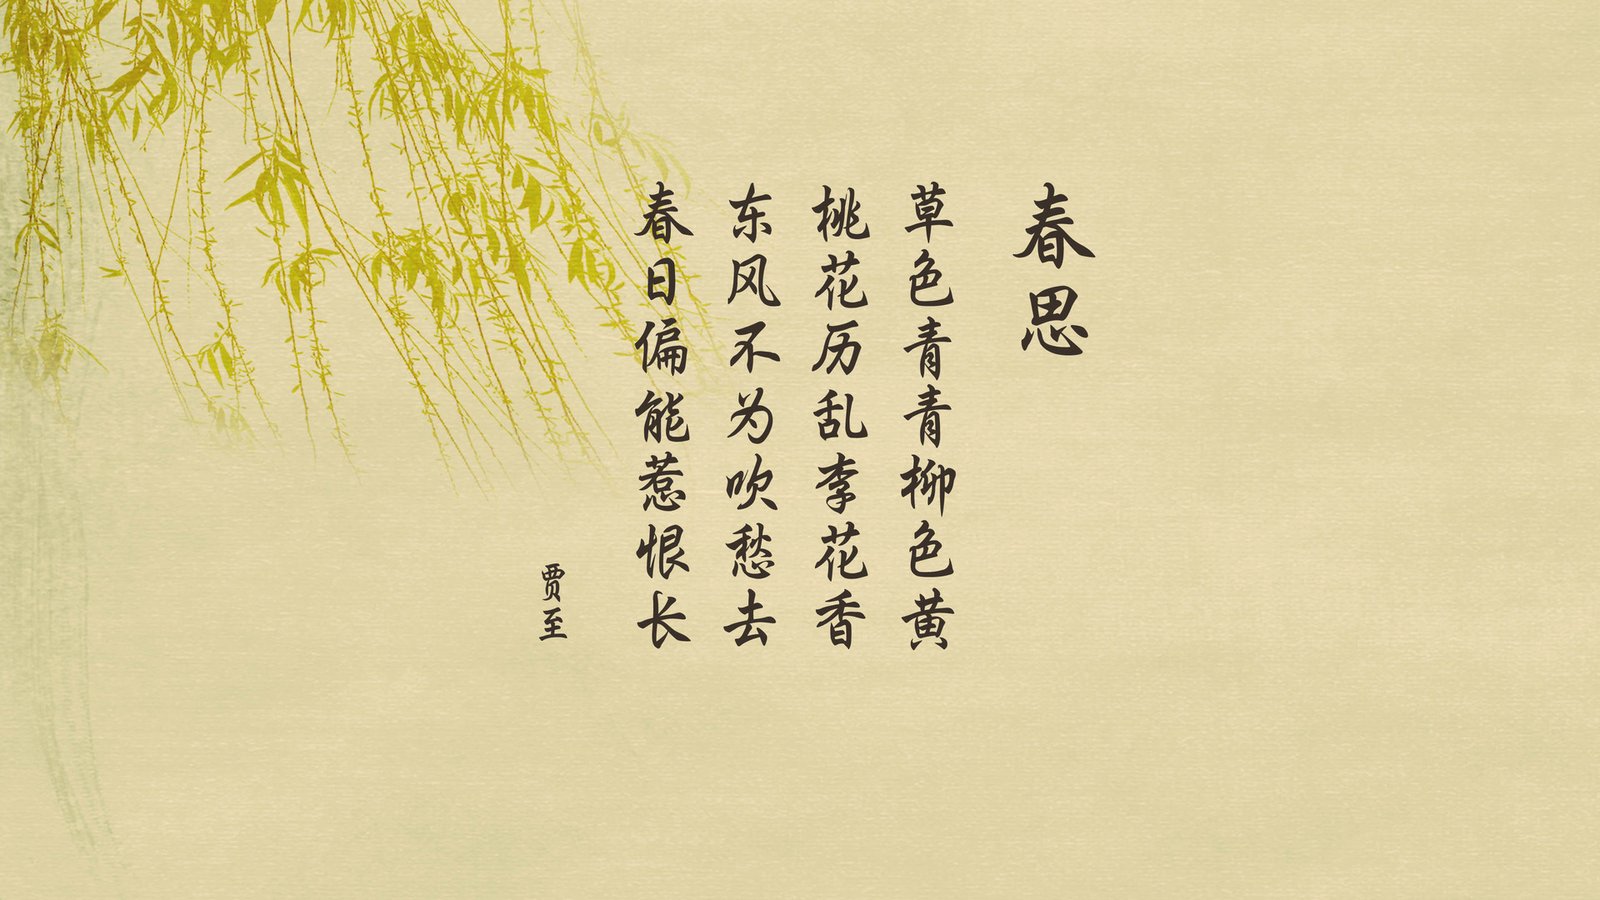 春思
草色青青柳色黄
桃花历乱李花香
东风不为吹愁去
春日偏能惹恨长
贾至